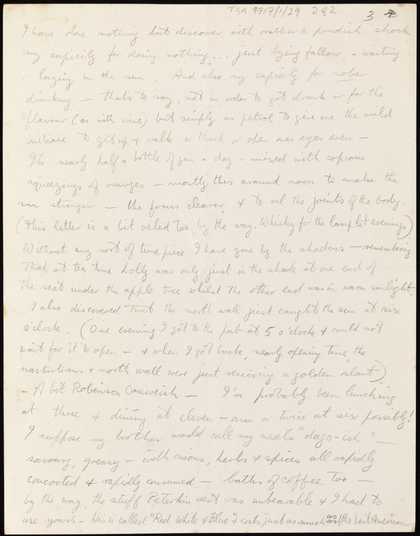 TGA 9917/1/29 2 of 2
3
I have done nothing but discover with rather a prudish shock
my capacity for doing nothing... just lying fallow & waiting
& lazing in the sun. And also my capacity for sober
drinking — that's to say, not in order to get drunk or for the
flavour (as with wine) but simply as petrol to give me the mild
to get up & walk or think or open one's eyes even —
It's nearly half a bottle of gin a day — mixed with copious
squeezings of oranges — mostly this around noon to make the
sun stronger — the flowers clearer & to oil the joints of the body.
(This letter is a bit oiled too, by the way. Whisky for the lamplit evenings)
Without any sort of time piece I have gone by the shadows — remembering
that at tea time holly was only just in the shade at one end of
the seat under the apple tree whilst the other end was in warm sunlight
I also discovered that the north wall just caught the sun at nine
o'clock. (One evening I got to the pub at 5 o'clock & could not
wait for it to open — & when I got back, nearly opening time, the
nasturtiums & north wall were just receiving a golden slant)
— A bit Robinson Crusoeish — I've probably been lunching
at three & dining at eleven — once or twice at six possibly!
I suppose my brother would call my meals "dago-ish" —
savoury, greasy — with onions, herbs & spices all rapidly
concocted & rapidly consumed — baths of coffee too —
by the way, the stuff Peterkin sent was unbearable & I had to
use yours — this is called "Red White & Blue" & costs just as much as the best American